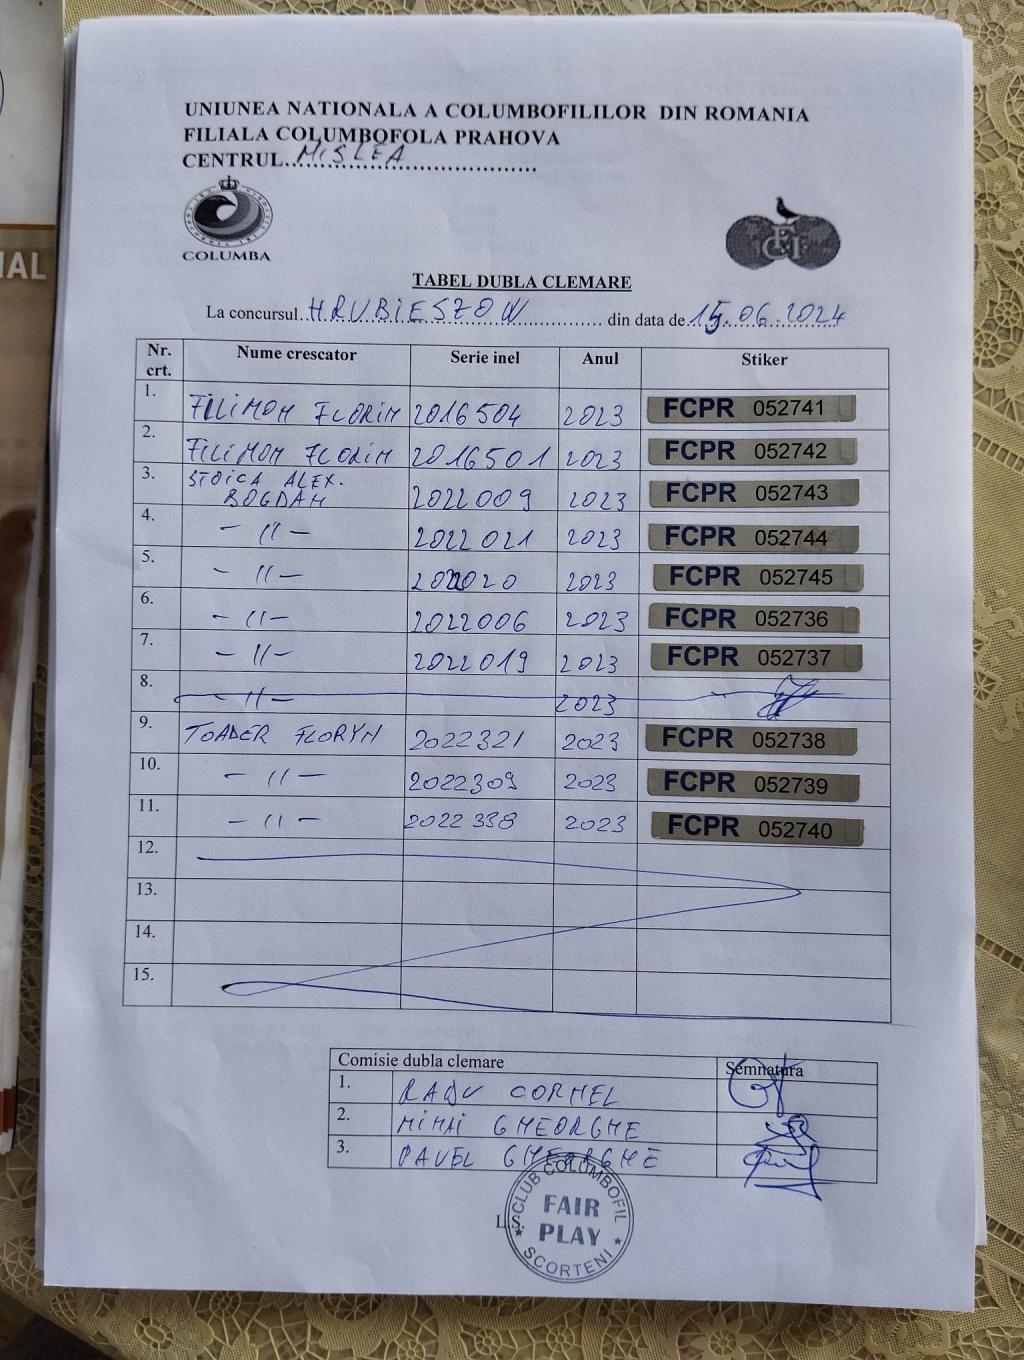 IAL
UNIUNEA NATIONALA A COLUMBOFILILOR DIN ROMANIA
FILIALA COLUMBOFOLA PRAHOVA
CENTRUL...MISLEA...
COLUMBA
FCI
TABEL DUBLA CLEMARE
La concursul..HRUBIESZOW.............. din data de.15.06.2024
Nr. crt. Nume crescator Serie inel Anul Stiker
1. FILIMON FLORIN 2016504 2023 FCPR 052741
2. FILIMON FLORIN 2016501 2023 FCPR 052742
3. STOICA ALEX. BOGDAN 2022009 2023 FCPR 052743
4. - 11 - 2022021 2023 FCPR 052744
5. - 11 - 2022020 2023 FCPR 052745
6. - 11 - 2022006 2023 FCPR 052736
7. - 11 - 2022019 2023 FCPR 052737
8. - 11 - 2023
9. TOADER FLORYN 2022321 2023 FCPR 052738
10. - 11 - 2022309 2023 FCPR 052739
11. - 11 - 2022338 2023 FCPR 052740
12.
13.
14.
15.
Comisie dubla clemare Semnatura
1. RADU CORNEL
2. MIHAI GHEORGHE
3. PAVEL GHEORGHE
L.S.
CLUB COLUMBOFIL
FAIR
PLAY
SCORTENI